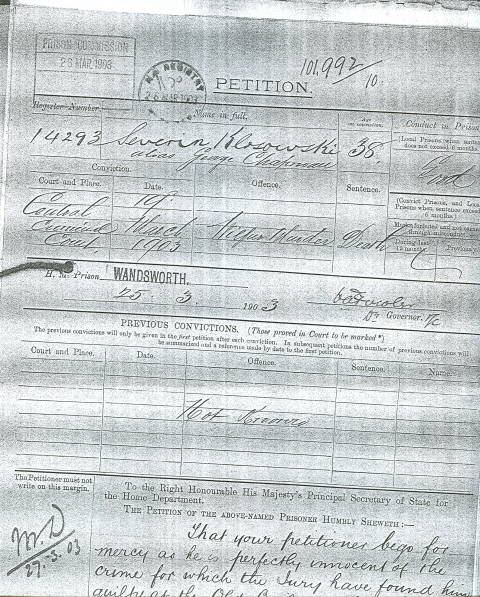 PRISON COMMISSION
26 MAR. 1903
H.O. REGISTRY
26 MAR. 1903
101,992/10.
PETITION.
Register Number.
Name in full.
Age on conviction.
Conduct in Prison
14293
Severin Klosowski
alias George Chapman
38.
(Local Prisons, when sentence does not exceed 6 months.)
Good
Conviction.
Court and Place.
Date.
Offence.
Sentence.
(Convict Prisons, and Local Prisons when sentence exceeds 6 months.)
Central Criminal Court
March 1903
Murder
Death
During last 12 months.
Previously
H. M. Prison
WANDSWORTH.
25. 3. 1903
Governor.
PREVIOUS CONVICTIONS. (Those proved in Court to be marked *)
The previous convictions will only be given in the first petition after each conviction. In subsequent petitions the number of previous convictions will
be summarized and a reference made by date to the first petition.
Court and Place.
Date.
Offence.
Sentence.
Name.
Not Known
The Petitioner must not
write on this margin.
To the Right Honourable His Majesty's Principal Secretary of State for
the Home Department.
THE PETITION OF THE ABOVE-NAMED PRISONER HUMBLY SHEWETH:—
That your petitioner begs for
mercy as he is perfectly innocent of the
crime for which the Jury have found him
guilty at the Old
27.3.03